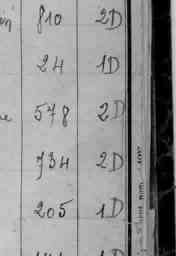 810 2D
24 1D
578 2D
734 2D
205 1D